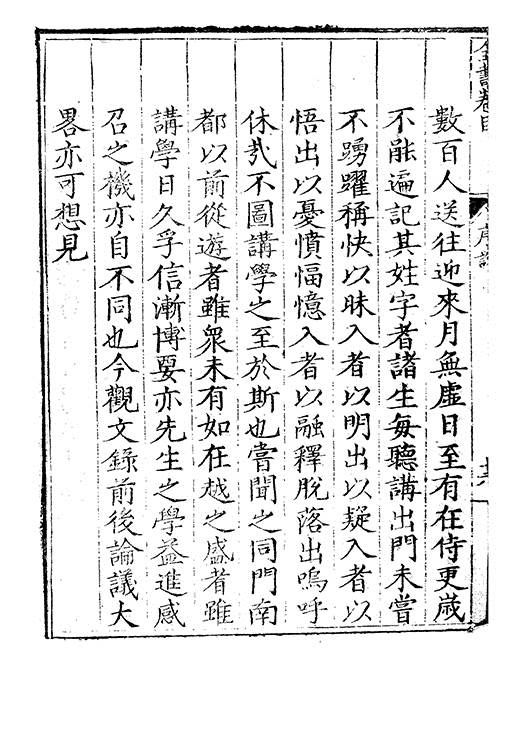 數百人送往迎來月無虛日至有在侍更歲
不能遍記其姓字者諸生每聽講出門未嘗
不踴躍稱快以昧入者以明出以疑入者以
悟出以憂憤愊憶入者以融釋脫落出嗚呼
休哉不圖講學之至於斯也嘗聞之同門南
都以前從遊者雖衆未有如在越之盛者雖
講學日久孚信漸博要亦先生之學益進感
召之機亦自不同也今觀文錄前後論議大
畧亦可想見